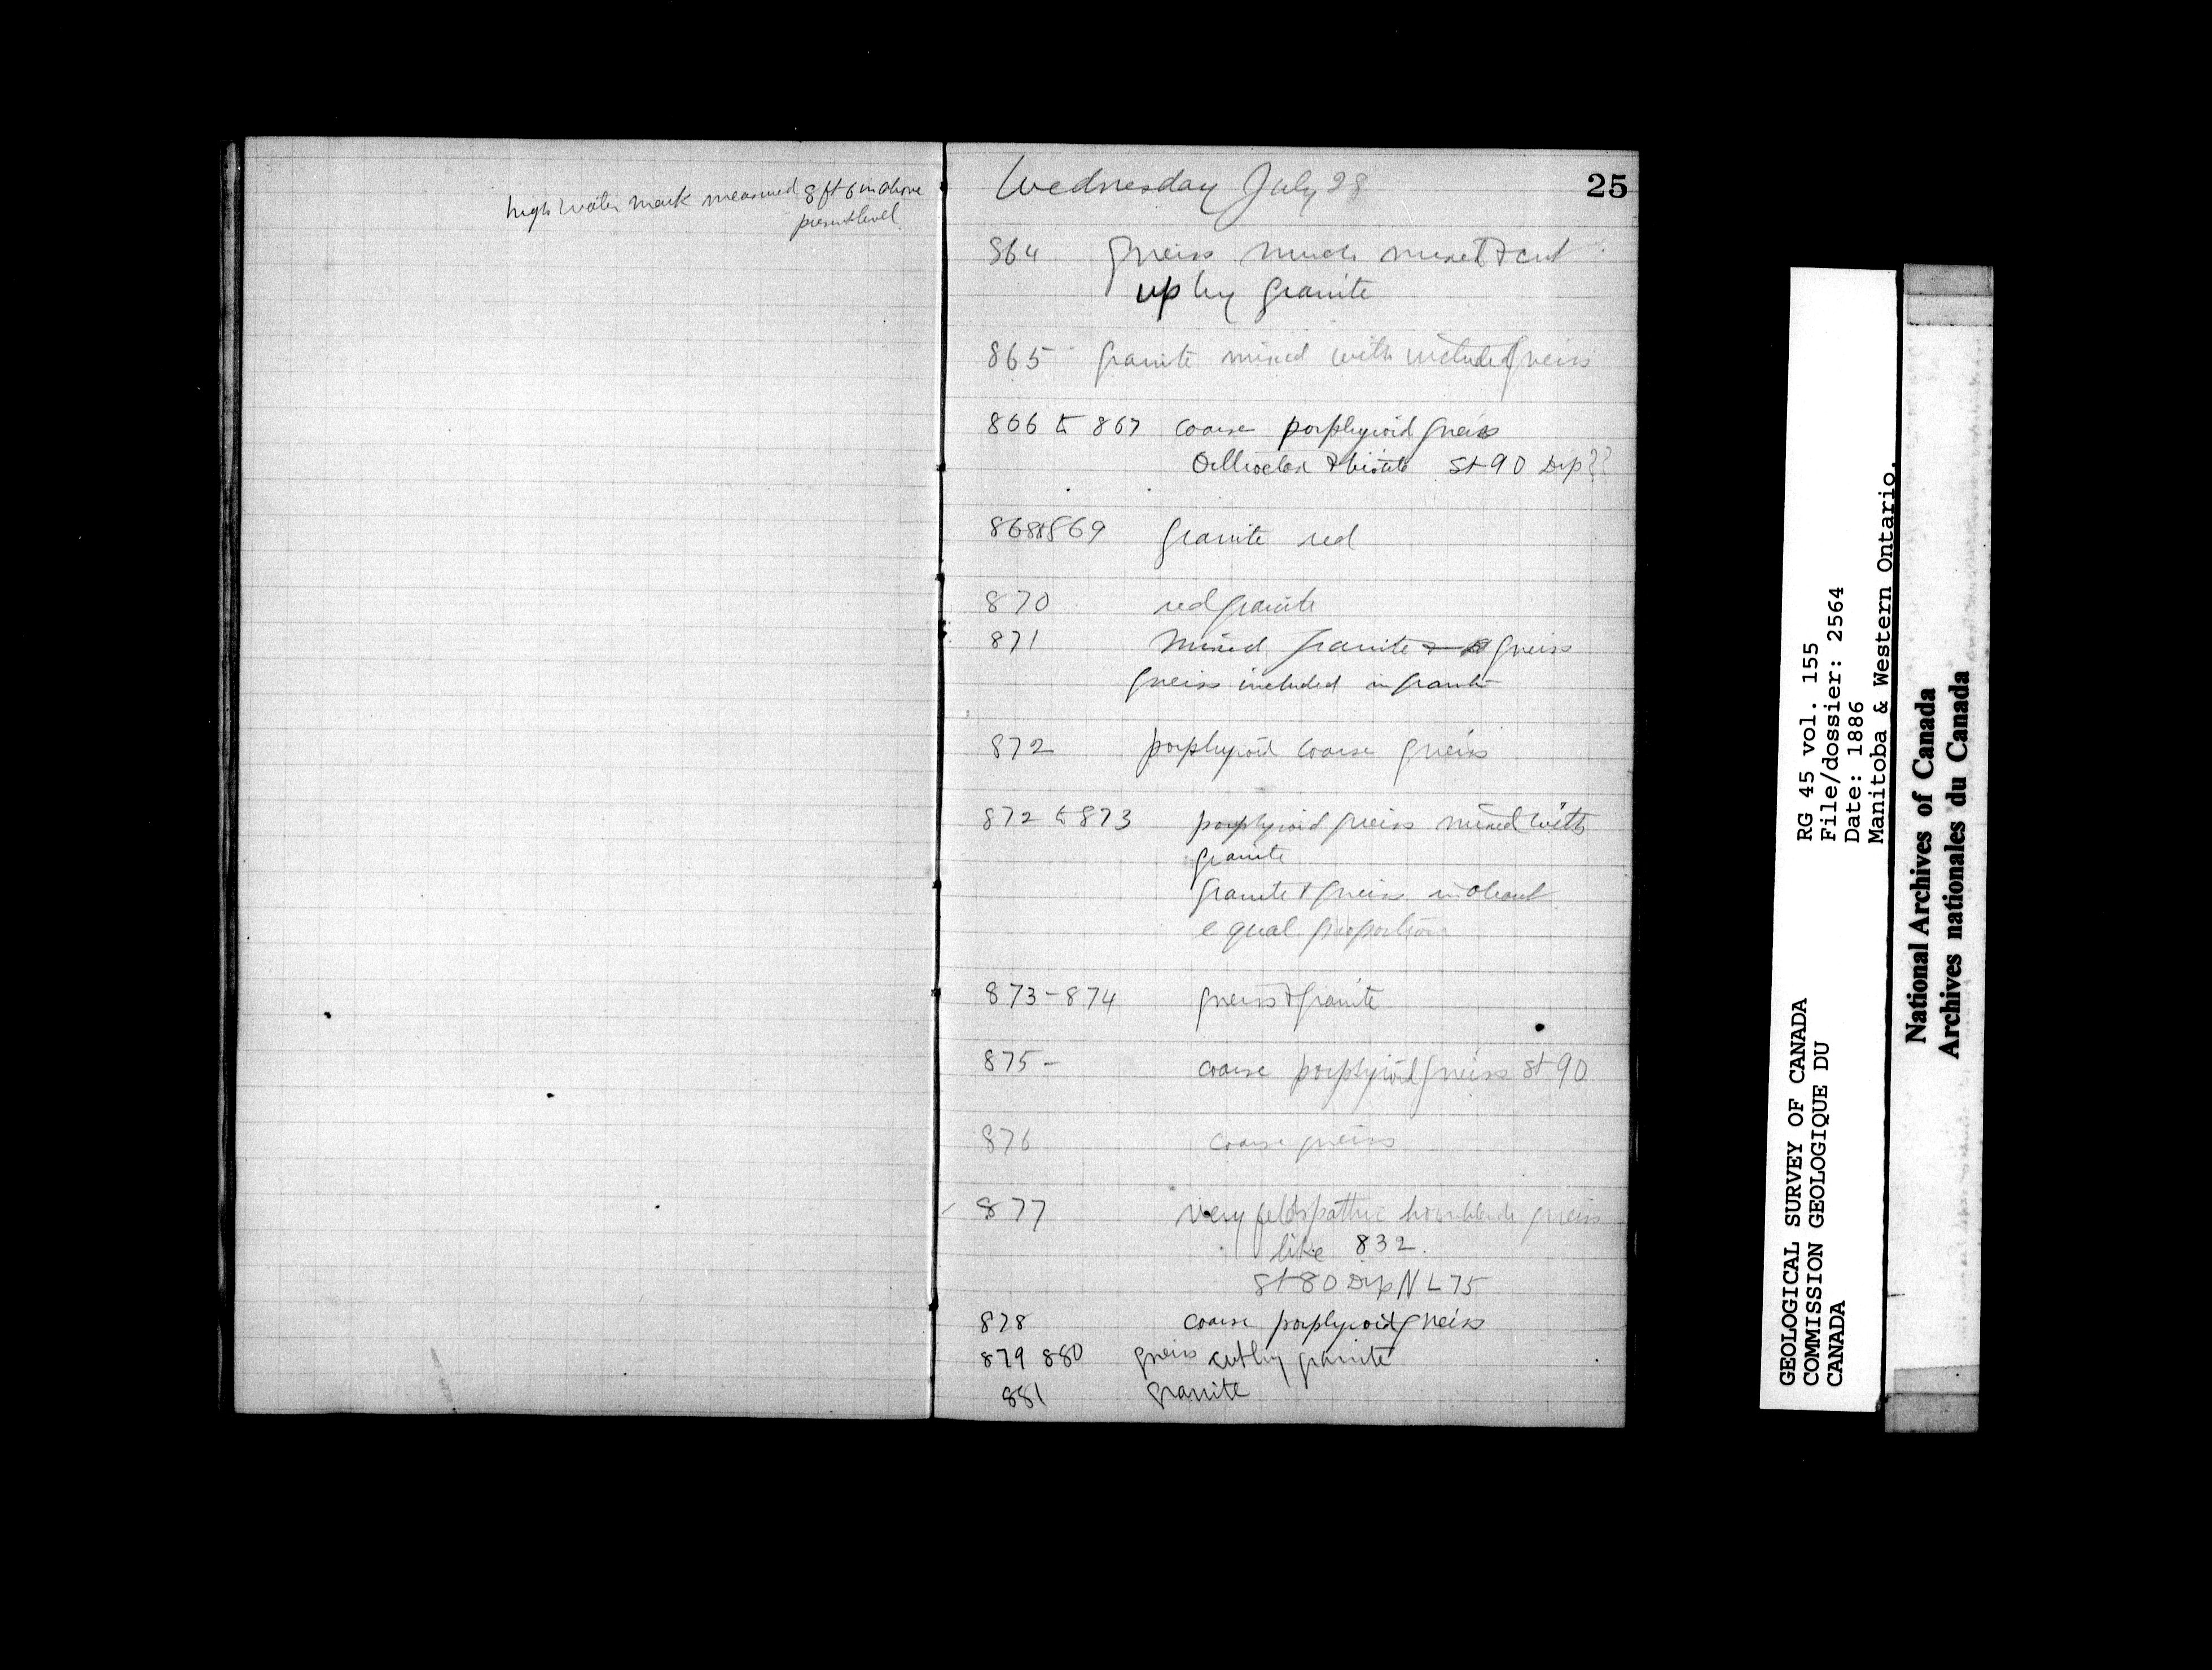 high water mark measured 8 ft 6 in above
present level
25
Wednesday July 28
864 gneiss much mixed & cut
up by granite
865 granite mixed with included gneiss
866 to 867 coarse porphyroid gneiss
Orthoclas & biotite St 90 Dip??
868 & 869 granite red
870 red granite
871 mixed granite & gneiss
gneiss included in granite
872 porphyroid coarse gneiss
872 to 873 porphyroid gneiss mixed with
granite
granite & gneiss in about
equal proportion
873-874 gneiss & granite
875- coarse porphyroid gneiss St 90
876 coarse gneiss
877 very feldspathic hornblende gneiss
like 832.
St 80 Dip N L 75
878 coarse porphyroid gneiss
879 880 gneiss cut by granite
881 granite
GEOLOGICAL SURVEY OF CANADA
COMMISSION GEOLOGIQUE DU
CANADA
RG 45 vol. 155
File/dossier: 2564
Date: 1886
Manitoba & Western Ontario.
National Archives of Canada
Archives nationales du Canada